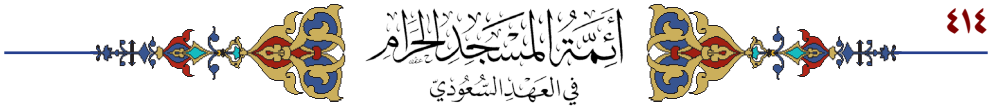 ٤١٤
أَئِمَّةُ المَسْجِدِ الحَرَامِ
فِي العَهْدِ السُّعُودِيّ